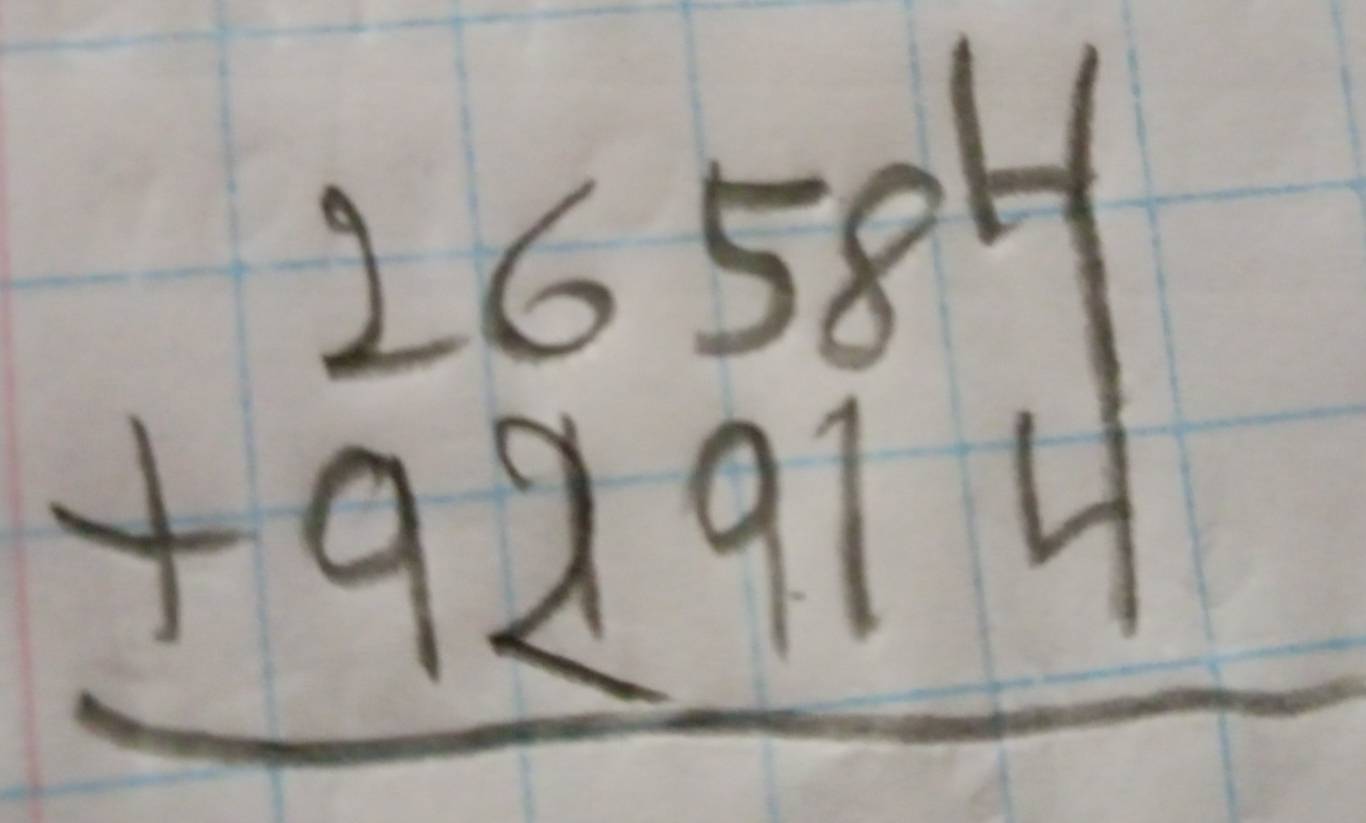 26584
+92914